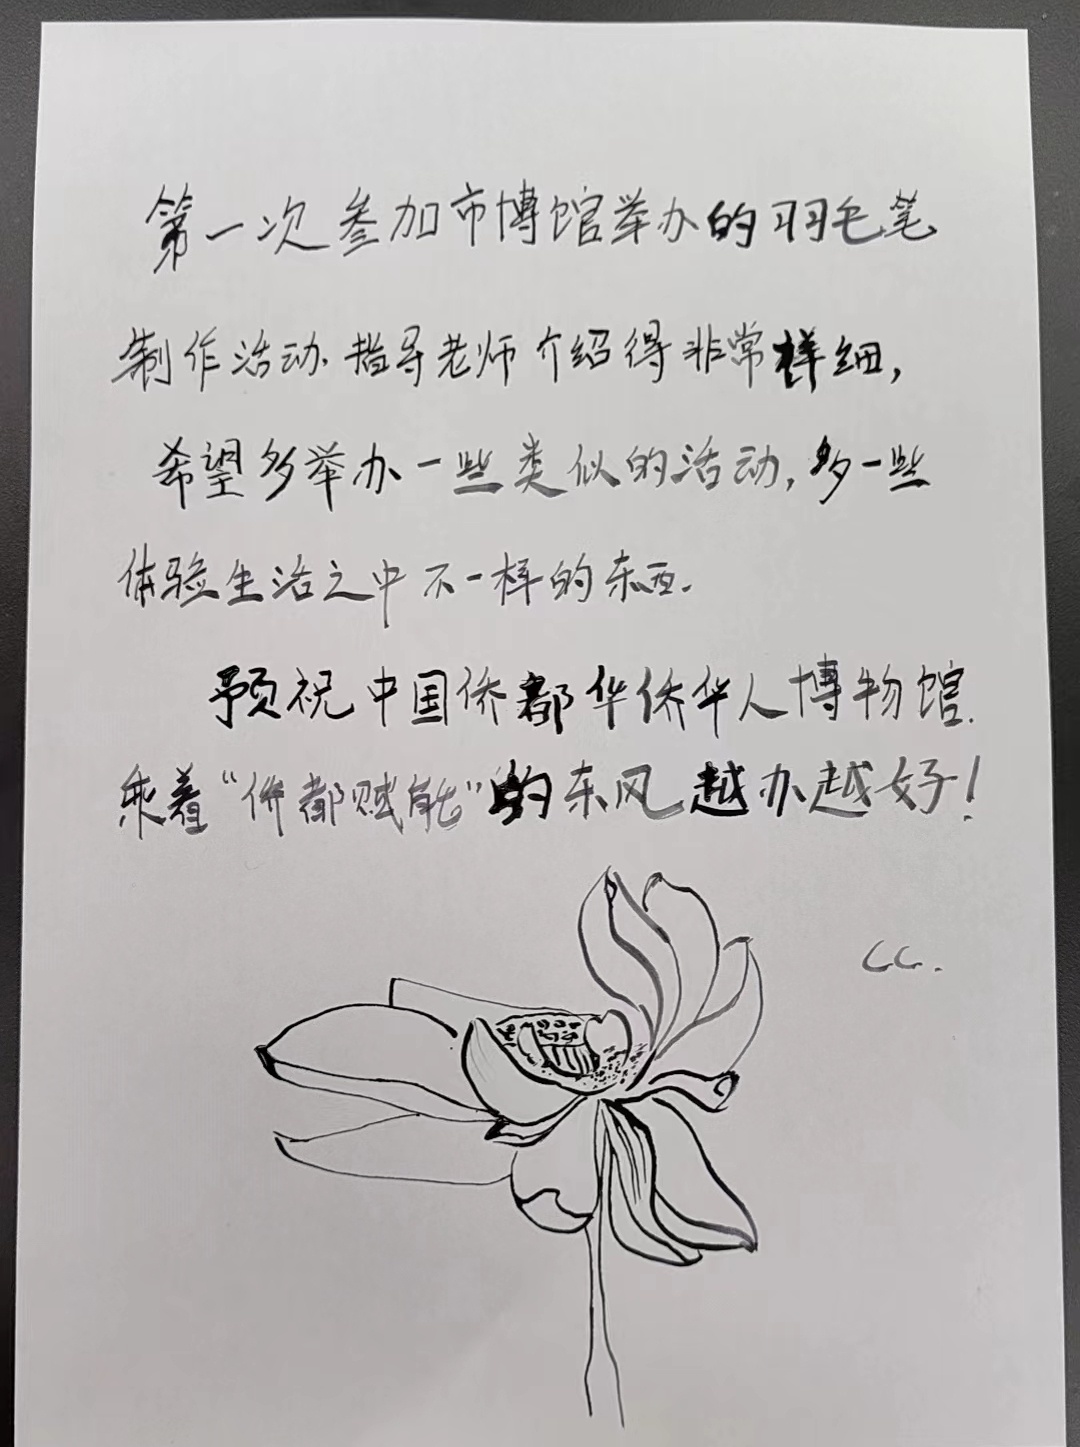 第一次参加市博馆举办的羽毛笔
制作活动.指导老师介绍得非常样细,
希望多举办一些类似的活动,多一些
体验生活之中不一样的东西.
预祝中国侨都华侨华人博物馆.
乘着“侨都赋能”的东风越办越好!
CC.